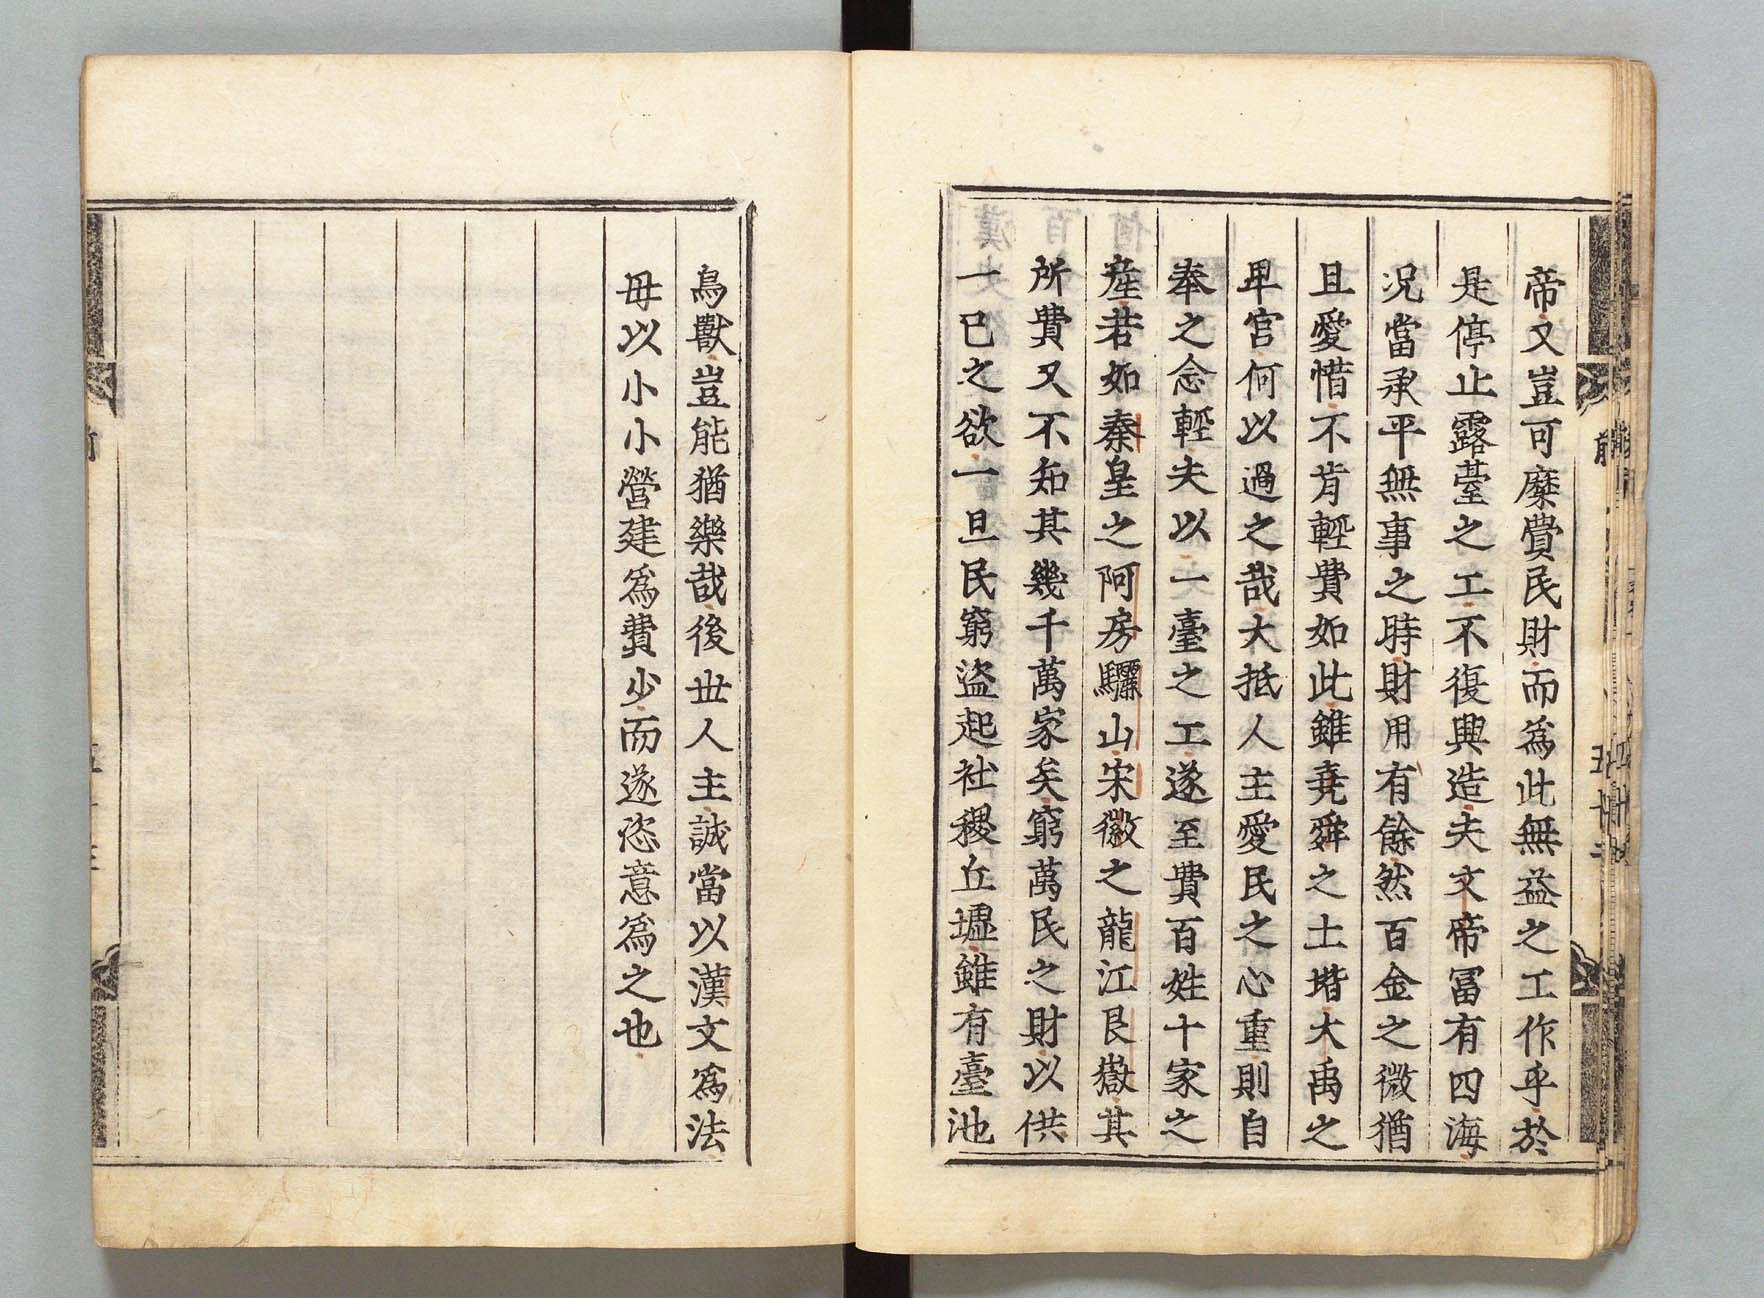 帝又豈可糜費民財而爲此無益之工作乎於
是停止露臺之工不復興造夫文帝冨有四海
况當承平無事之時財用有餘然百金之微猶
且愛惜不肯輕費如此雖堯舜之土堦大禹之
卑宮何以過之哉大抵人主愛民之心重則自
奉之念輕夫以一臺之工遂至費百姓十家之
産若如秦皇之阿房驪山宋徽之龍江艮嶽其
所費又不知其幾千萬家矣窮萬民之財以供
一已之欲一旦民窮盜起社稷丘墟雖有臺池
鳥獸豈能猶樂哉後世人主誠當以漢文爲法
毋以小小營建爲費少而遂恣意爲之也